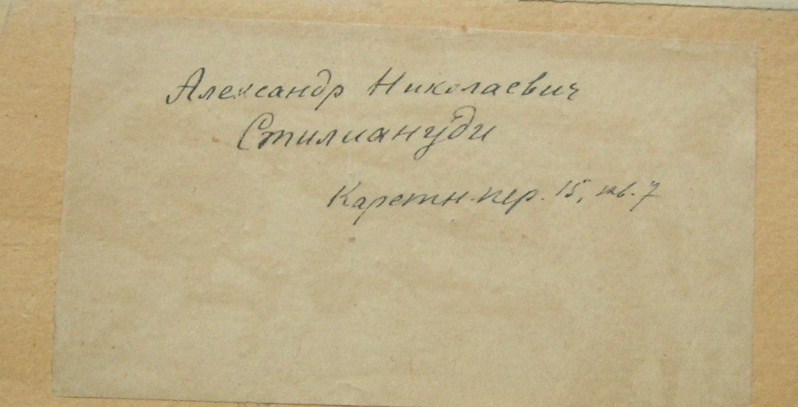 Александр Николаевич
Стилиануди
Каретн. пер. 15, кв. 7